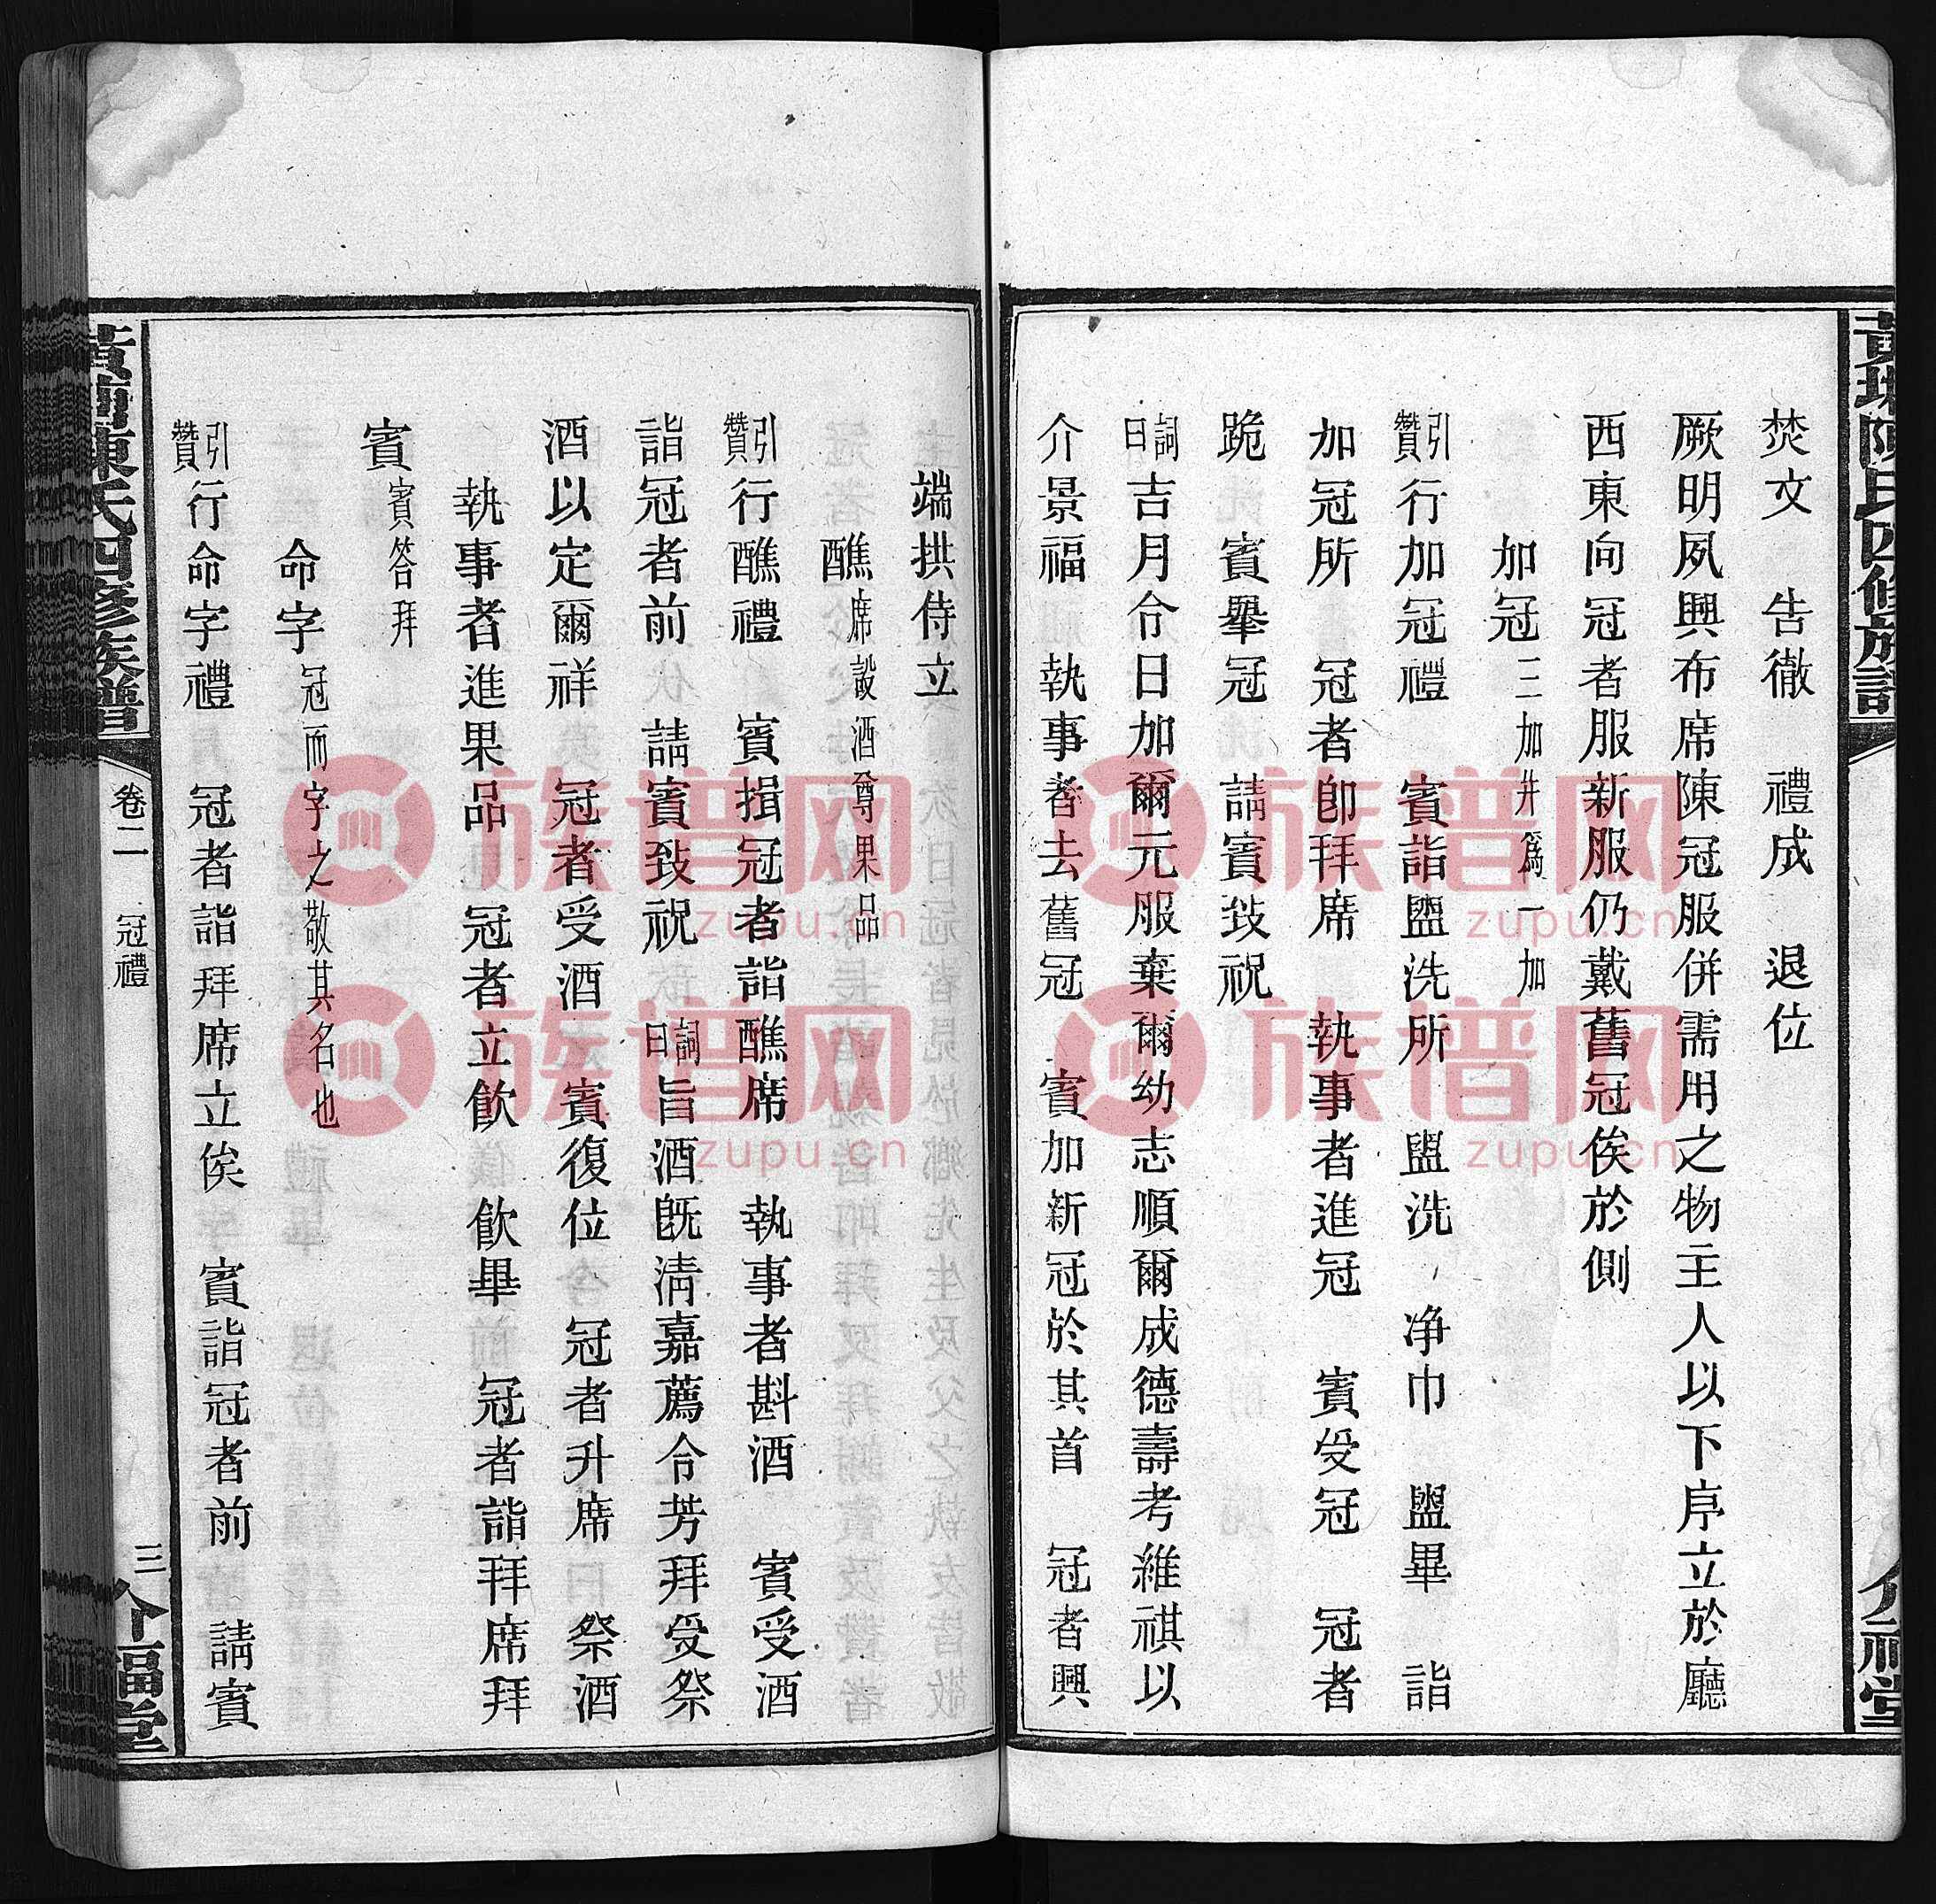 焚文　告徹　禮成　退位
厥明夙興布席陳冠服併需用之物主人以下序立於廳
西東向冠者服新服仍戴舊冠俟於側
加冠三加并爲一加
引贊行加冠禮　賓詣盥洗所　盥洗　净巾　盥畢　詣
加冠所　冠者卽拜席　執事者進冠　賓受冠　冠者
跪　賓舉冠　請賓致祝
詞曰吉月令日加爾元服棄爾幼志順爾成德壽考維祺以
介景福　執事者去舊冠　賓加新冠於其首　冠者興
端拱侍立
醮席設酒尊果品
引贊行醮禮　賓揖冠者詣醮席　執事者斟酒　賓受酒
詣冠者前　請賓致祝　詞曰旨酒旣淸嘉薦令芳拜受祭
酒以定爾祥　冠者受酒　賓復位　冠者升席　祭酒
執事者進果品　冠者立飮　飮畢　冠者詣拜席拜
賓賓答拜
命字冠而字之敬其名也
引贊行命字禮　冠者詣拜席立俟　賓詣冠者前　請賓
陳氏四修族譜
卷二　冠禮
三
介福堂
族谱网
zupu.cn
族谱网
zupu.cn
族谱网
zupu.cn
族谱网
zupu.cn